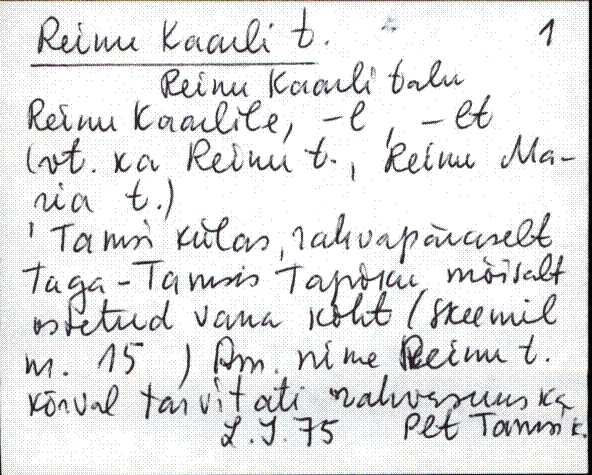 Reinu Kaarli t. 1
Reinu Kaarli talu
Reinu Kaarlile, -l, -lt
(vt. ka Reinu t., Reinu Ma-
ria t.)
Tamsi külas, rahvapäraselt
Taga-Tamsis Tapiku mõisalt
ostetud vana koht (skeemil
nr. 15 ) Am. nime Reinu t.
kõrval tarvitati rahvasuus ka
L.J. 75 Plt Tamsi k.